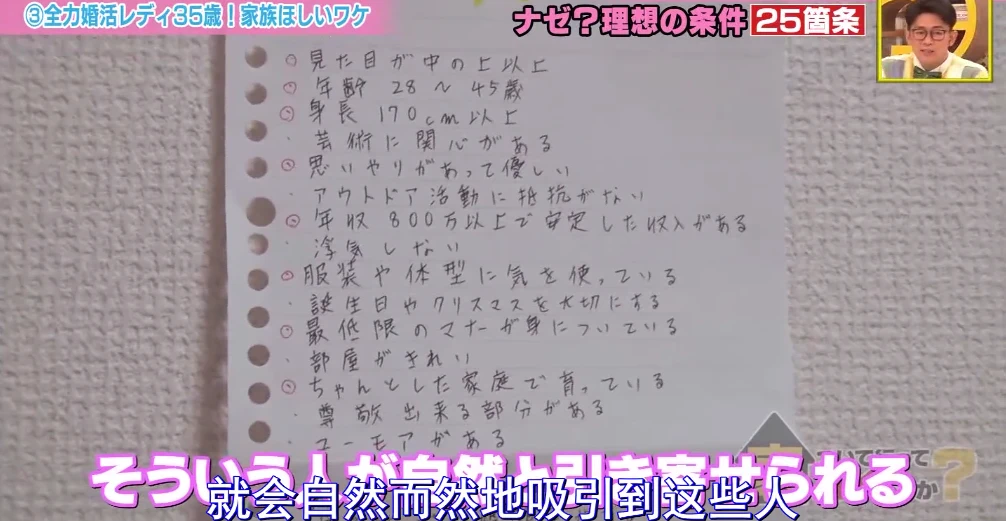 ③全力婚活レディ35歳!家族ほしいワケ
ナゼ?理想の条件 25箇条
○見た目が中の上以上
○年齢 28~45歳
○身長 170cm以上
・芸術に関心がある
○思いやりがあって優しい
・アウトドア活動に抵抗がない
○年収 800万以上で安定した収入がある
・浮気しない
○服装や体型に気を使っている
・誕生日やクリスマスを大切にする
○最低限のマナーが身についている
・部屋がきれい
○ちゃんとした家庭で育っている
・尊敬出来る部分がある
・ユーモアがある
そういう人が自然と引き寄せられる
就会自然而然地吸引到这些人